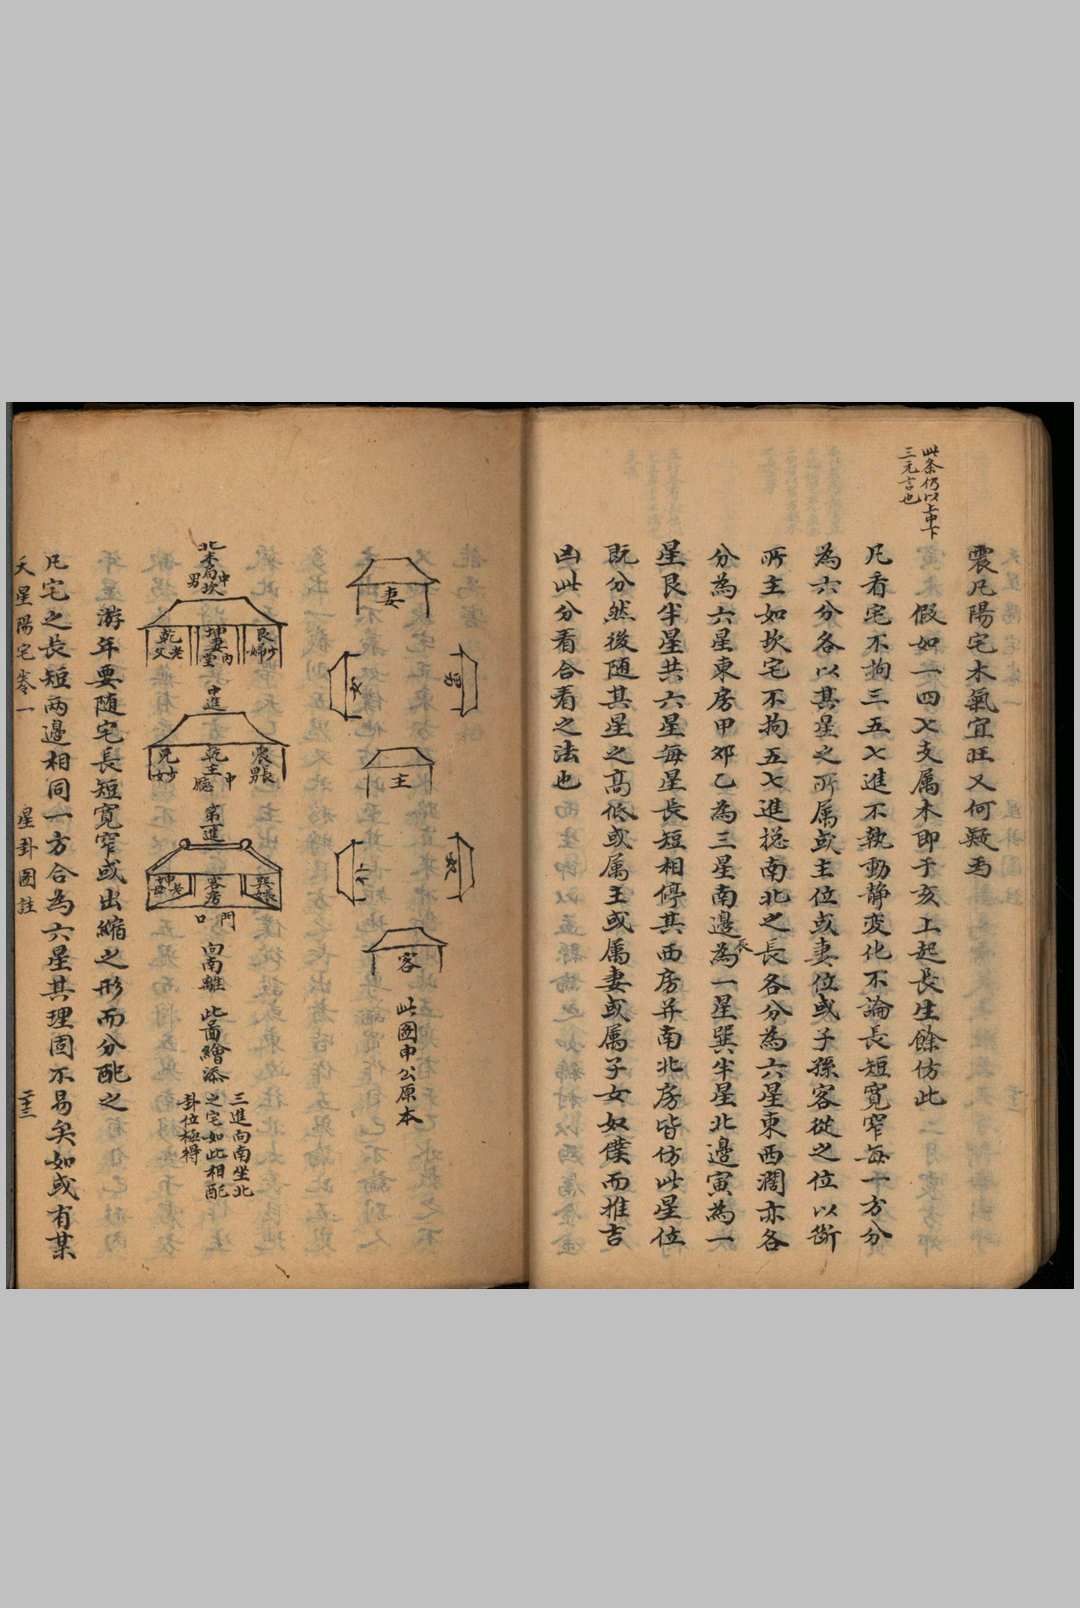 此条仍以上中下
三元言也
震凡陽宅木氣宜旺又何疑焉
假如一四七支属木即于亥上起長生餘仿此
凡看宅不拘三五七進不執動靜变化不論長短寬窄每一方分
為六分各以其星之所属或主位或妻位或子孫客從之位以断
所主如坎宅不拘五七進総南北之長各分為六星東西濶亦各
分為六星東房甲卯乙為三星南邊辰為一星巽半星北邊寅為一
星艮半星共六星每星長短相停其西房并南北房皆仿此星位
既分然後随其星之高低或属主或属妻或属子女奴僕而推吉
凶此分看合看之法也
妻
主
客
此圖申公原本
北李局坎
中男
乾老父
坤妻堂内
艮少婦
中進
兄少
乾主廳中
震長男
第進
坤老母
客房
巽娘
門口
向南離
此面繪添
三進向南坐北
之宅如此相配
卦位極得
游年要随宅長短寬窄或出縮之形而分配之
凡宅之長短两邊相同一方合為六星其理固不易矣如或有某
天星陽宅卷一
星卦圖註
三十三